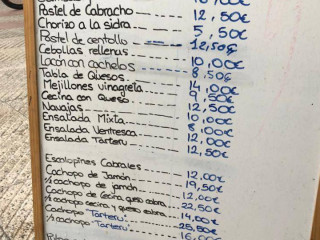 10,00€
Pastel de Cabracho ---- 12,50€
Chorizo a la sidra ---- 5,50€
Pastel de centollo ---- 12,50€
Cebollas rellenas ---- 10,00€
Lacón con cachelos ---- 8,50€
Tabla de Quesos ---- 14,00€
Mejillones vinagreta ---- 9,50€
Cecina con queso ---- 12,50€
Navajas ---- 10,00€
Ensalada Mixta ---- 8,00€
Ensalada Ventresca ---- 12,00€
Ensalada Tarteru ---- 12,50€
Escalopines Cabrales ---- 12,00€
Cachopo de Jamón ---- 19,50€
½ cachopo de jamón ---- 12,00€
Cachopo de Cecina queso cabra ---- 22,50€
½ cachopo cecina y queso cabra ---- 14,00€
Cachopo "Tarteru" ---- 25,50€
½ cachopo "Tarteru" ---- 16,00€